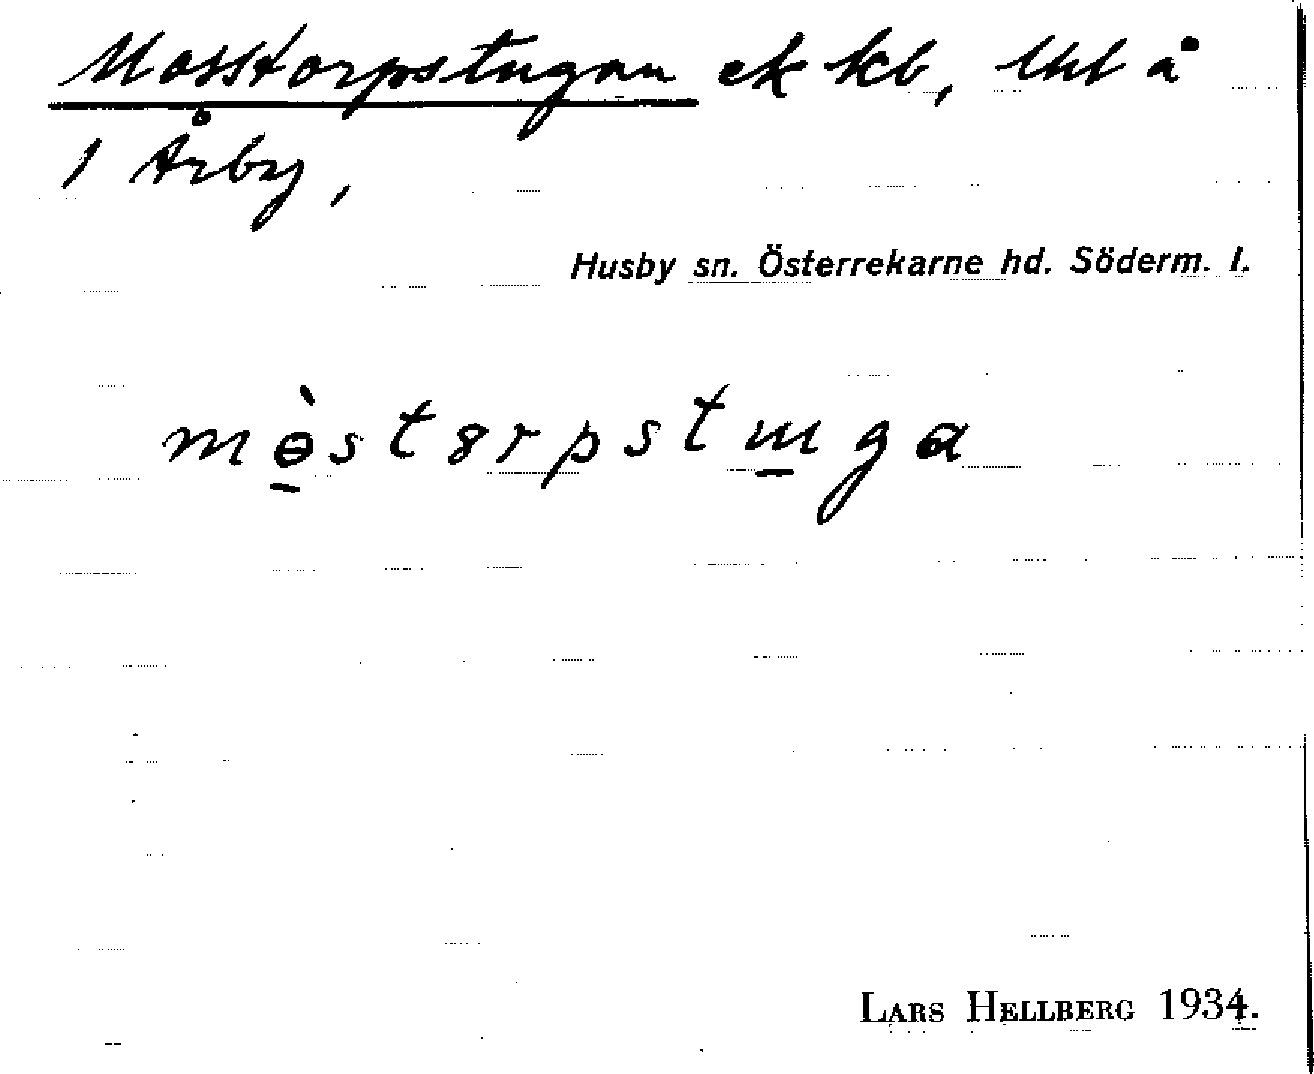 Mosstorpstugan ek kb, lht å
1 Årby,
Husby sn. Österrekarne hd. Söderm. l.
mòstɵrpstuga
LARS HELLBERG 1934.